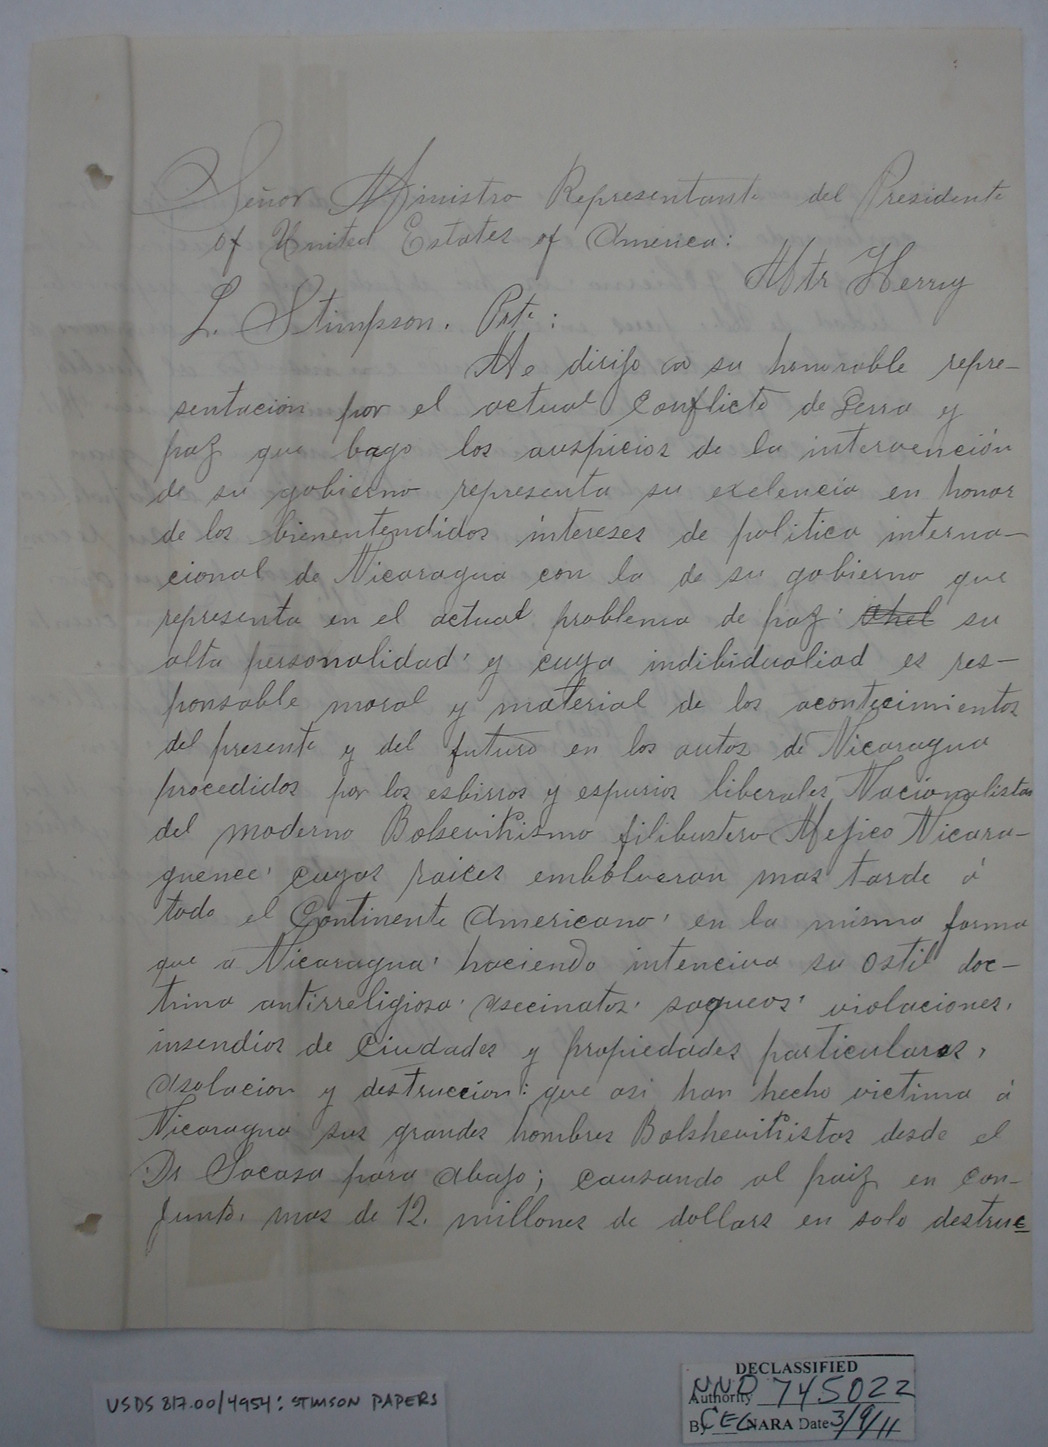 Señor Ministro Representante del Presidente
of United Estates of America:
Mtr Henrry
L. Stimpson. Pste:
Me dirijo a su honorable repre-
sentación por el actual Conflicto de Gerra y
paz que bago los auspicios de la intervención
de su gobierno representa su exelencia en honor
de los bienentendidos intereses de politica interna-
cional de Nicaragua con la de su gobierno que
representa en el actual problema de paz su
alta personalidad y cuya indibidualiad es res-
ponsable moral y material de los acontecimientos
del presente y del futuro en los autos de Nicaragua
procedidos por los esbirros y espurios liberales Nacionalistas
del moderno Bolsevikismo filibustero Mejico Nicara-
guence, cuyas raices embolveran mas tarde á
todo el Continente Americano, en la misma forma
que a Nicaragua, haciendo intenciva su ostil doc-
trina antirreligiosa, asecinatos, saqueos, violaciones,
insendios de Ciudades y propiedades particulares,
asolacion y destruccion: que asi han hecho victima á
Nicaragua sus grandes hombres Bolshevikistas desde el
Dr Sacasa para abajo; causando al paiz en con-
junto, mas de 12. millones de dollars en solo destruc
USDS 817.00/4954: STIMSON PAPERS
DECLASSIFIED
Authority NND 745022
By CEG NARA Date 3/9/11